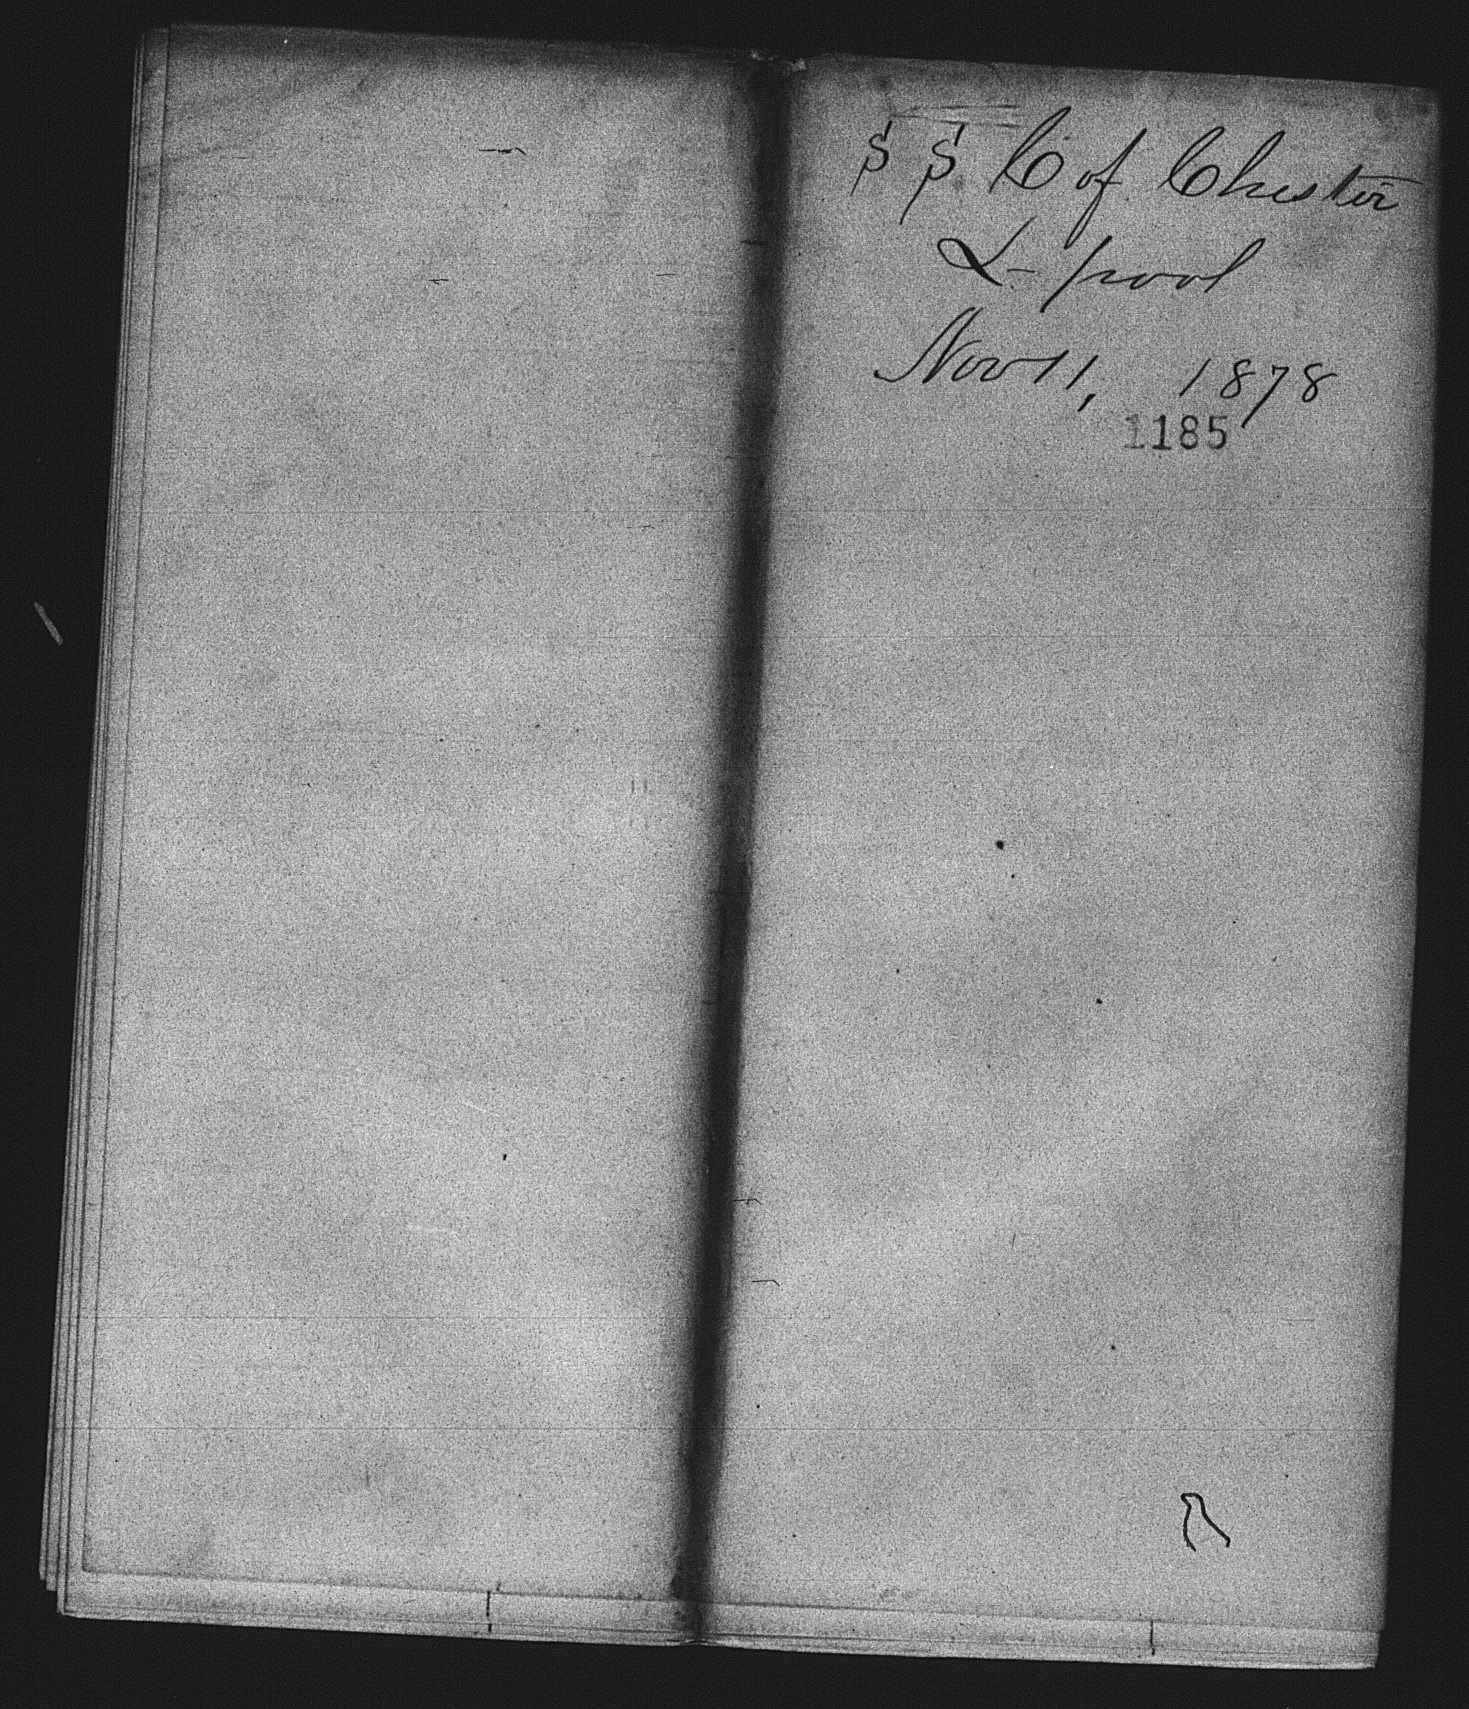 S S C of Chester
L-pool
Nov 11, 1878
1185